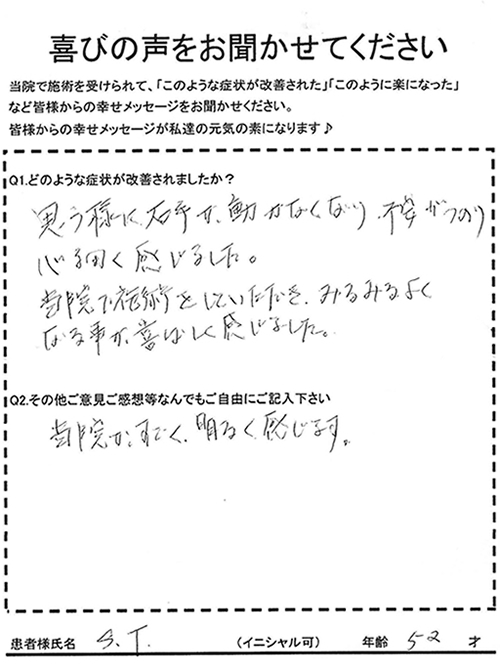 喜びの声をお聞かせてください
当院で施術を受けられて、「このような症状が改善された」「このように楽になった」
など皆様からの幸せメッセージをお聞かせください。
皆様からの幸せメッセージが私達の元気の素になります♪
Q1.どのような症状が改善されましたか？
思う様に、右手が、動かなくなり、不安がつのり
心細く感じました。
当院で施術をしていただき、みるみるよく
なる事が、喜ばしく感じました。
Q2.その他ご意見ご感想等なんでもご自由にご記入下さい
当院が、すごく、明るく感じます。
患者様氏名 S.T. （イニシャル可） 年齢 52 才